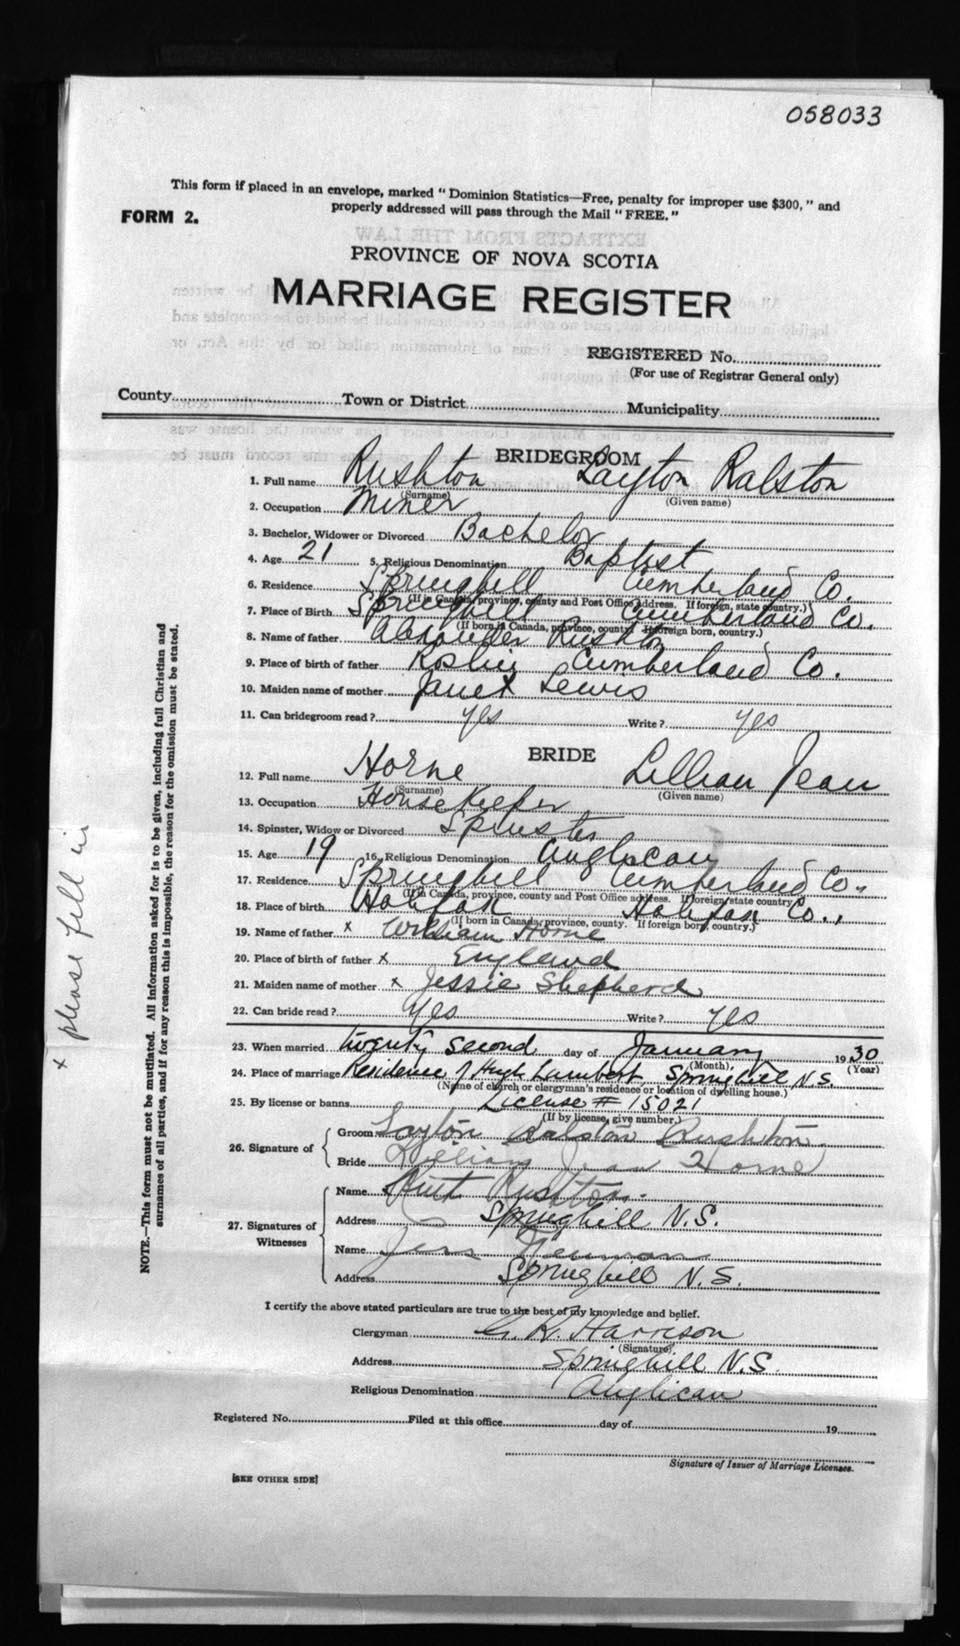 058033
This form if placed in an envelope, marked "Dominion Statistics—Free, penalty for improper use $300," and
properly addressed will pass through the Mail "FREE."
FORM 2.
PROVINCE OF NOVA SCOTIA
MARRIAGE REGISTER
REGISTERED No.
(For use of Registrar General only)
County Town or District Municipality
BRIDEGROOM
1. Full name Rushton Layton Ralston
(Surname) (Given name)
2. Occupation Miner
3. Bachelor, Widower or Divorced Bachelor
4. Age 21 5. Religious Denomination Baptist
6. Residence Springhill Cumberland Co.
(If in Canada, province, county and Post Office address. If foreign, state country.)
7. Place of Birth Springhill Cumberland Co.
(If born in Canada, province, county. If foreign born, country.)
8. Name of father Alexander Rushton
9. Place of birth of father Roslin Cumberland Co.
10. Maiden name of mother Janet Lewis
11. Can bridegroom read? yes Write? yes
BRIDE
12. Full name Horne Lillian Jean
(Surname) (Given name)
13. Occupation Housekeeper
14. Spinster, Widow or Divorced Spinster
15. Age 19 16. Religious Denomination Anglican
17. Residence Springhill Cumberland Co.
(If in Canada, province, county and Post Office address. If foreign state country
18. Place of birth Halifax Halifax Co.,
(If born in Canada, province, county. If foreign born, country.)
19. Name of father x William Horne
20. Place of birth of father x England
21. Maiden name of mother x Jessie Shepherd
22. Can bride read? Yes Write? yes
23. When married twenty second day of January 1930
(Month), (Year)
24. Place of marriage Residence of Hugh Lambert, Springhill N.S.
(Name of church or clergyman's residence or location of dwelling house.)
25. By license or banns License # 15021
(If by license, give number.)
26. Signature of Groom Layton Ralston Rushton
Bride Lillian Jean Horne
27. Signatures of Witnesses
Name Rushton.
Address Springhill N.S.
Name Jess
Address Springhill N.S.
I certify the above stated particulars are true to the best of my knowledge and belief.
Clergyman G. R. Harrison
(Signature)
Address Springhill N.S.
Religious Denomination Anglican
Registered No. Filed at this office day of 19
Signature of Issuer of Marriage Licenses.
[SEE OTHER SIDE]
NOTE.—This form must not be mutilated. All information asked for is to be given, including full Christian and
surnames of all parties, and if for any reason this is impossible, the reason for the omission must be stated.
x please fill in